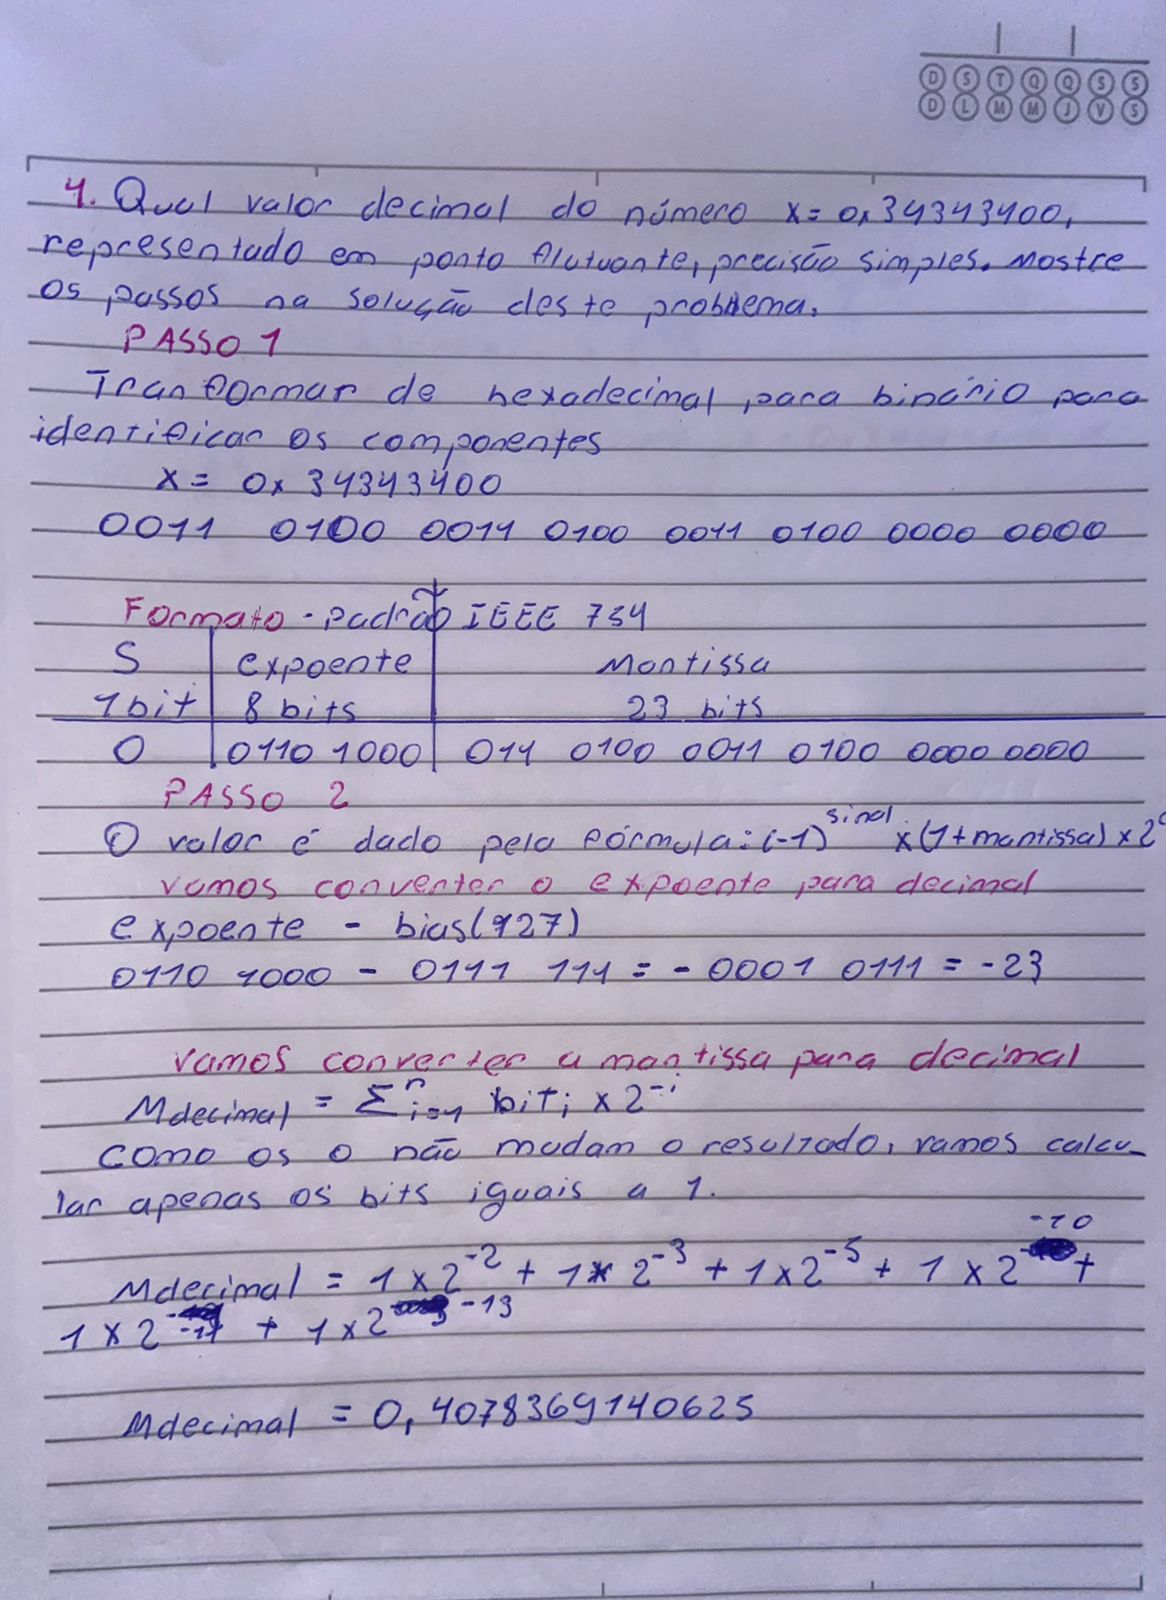 D S T Q Q S S
D L M M J V S
4. Qual valor decimal do número x = 0x34343400,
representado em ponto flutuante, precisão simples. Mostre
os passos na solução deste problema.
PASSO 1
Tranformar de hexadecimal para binário para
identificar os componentes
x = 0x 34343400
0011 0100 0011 0100 0011 0100 0000 0000
Formato - padrão IEEE 754
S | expoente | Mantissa
1 bit | 8 bits | 23 bits
0 | 0110 1000 | 011 0100 0011 0100 0000 0000
PASSO 2
O valor é dado pela fórmula: (-1)^sinal × (1 + mantissa) × 2
vamos converter o expoente para decimal
expoente - bias(127)
0110 1000 - 0111 111 = - 0001 0111 = -23
vamos converter a mantissa para decimal
Mdecimal = Σⁿᵢ₌₁ bitᵢ × 2⁻ⁱ
como os 0 não mudam o resultado, vamos calcu-
lar apenas os bits iguais a 1.
Mdecimal = 1 × 2⁻² + 1 × 2⁻³ + 1 × 2⁻⁵ + 1 × 2⁻¹⁰ +
1 × 2⁻¹¹ + 1 × 2⁻¹³
Mdecimal = 0,4078369140625